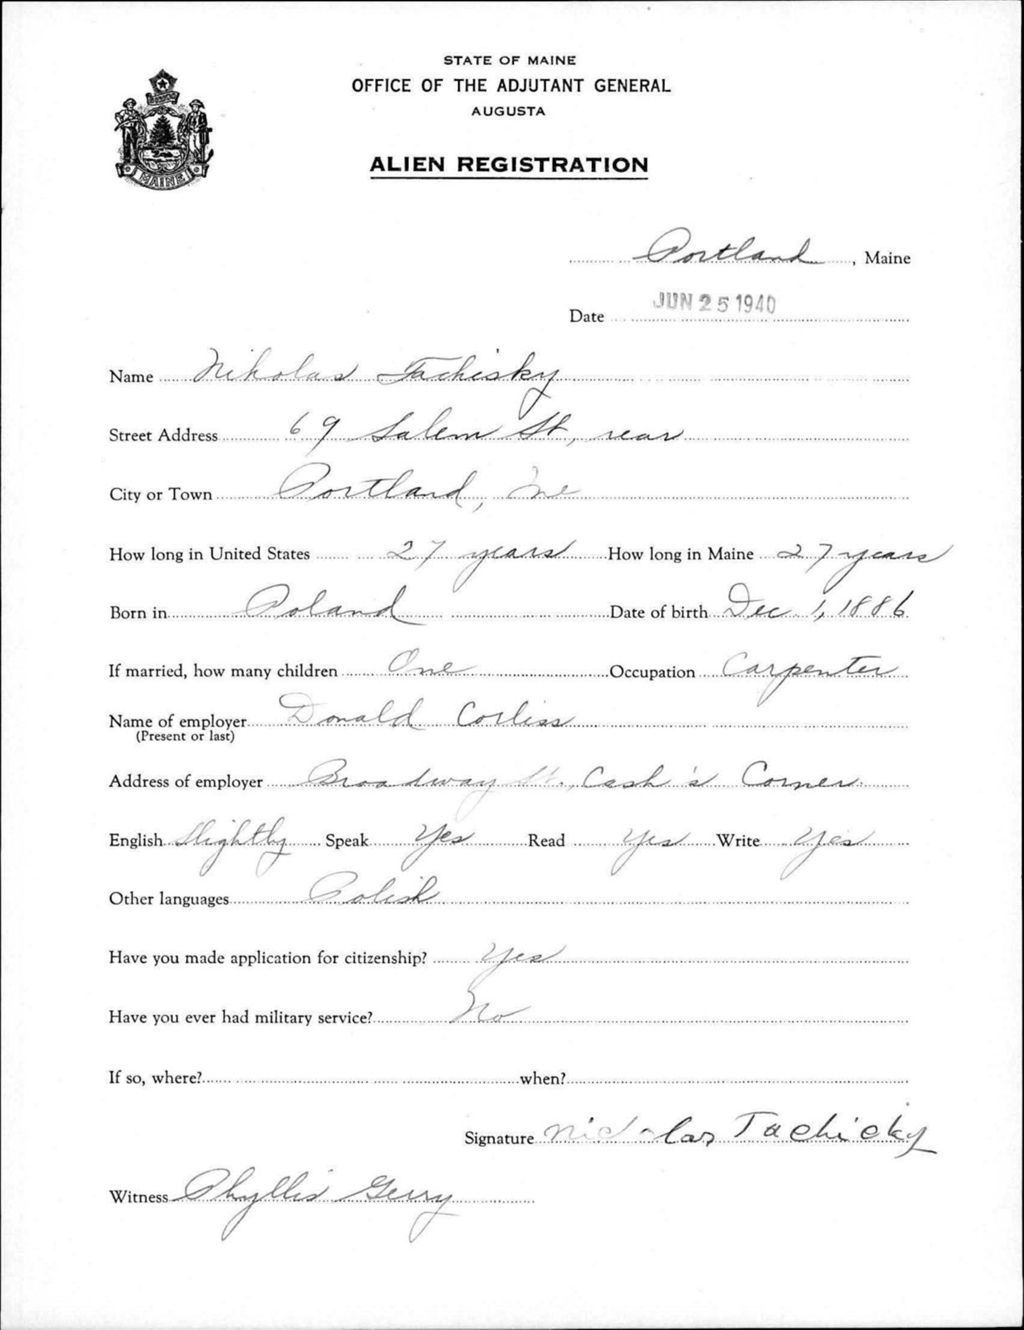 STATE OF MAINE
OFFICE OF THE ADJUTANT GENERAL
AUGUSTA
ALIEN REGISTRATION
MAINE
Portland, Maine
Date JUN 25 1940
Name Nikolas Tachisky
Street Address 69 Salem St, rear
City or Town Portland, Me
How long in United States 27 years How long in Maine 27 years
Born in Poland Date of birth Dec 1, 1886
If married, how many children One Occupation Carpenter
Name of employer Donald Corliss
(Present or last)
Address of employer Broadway St., Cash's Corner
English Slightly Speak Yes Read Yes Write Yes
Other languages Polish
Have you made application for citizenship? Yes
Have you ever had military service? No
If so, where? when?
Signature Nicolas Tachicky
Witness Phyllis Gerry